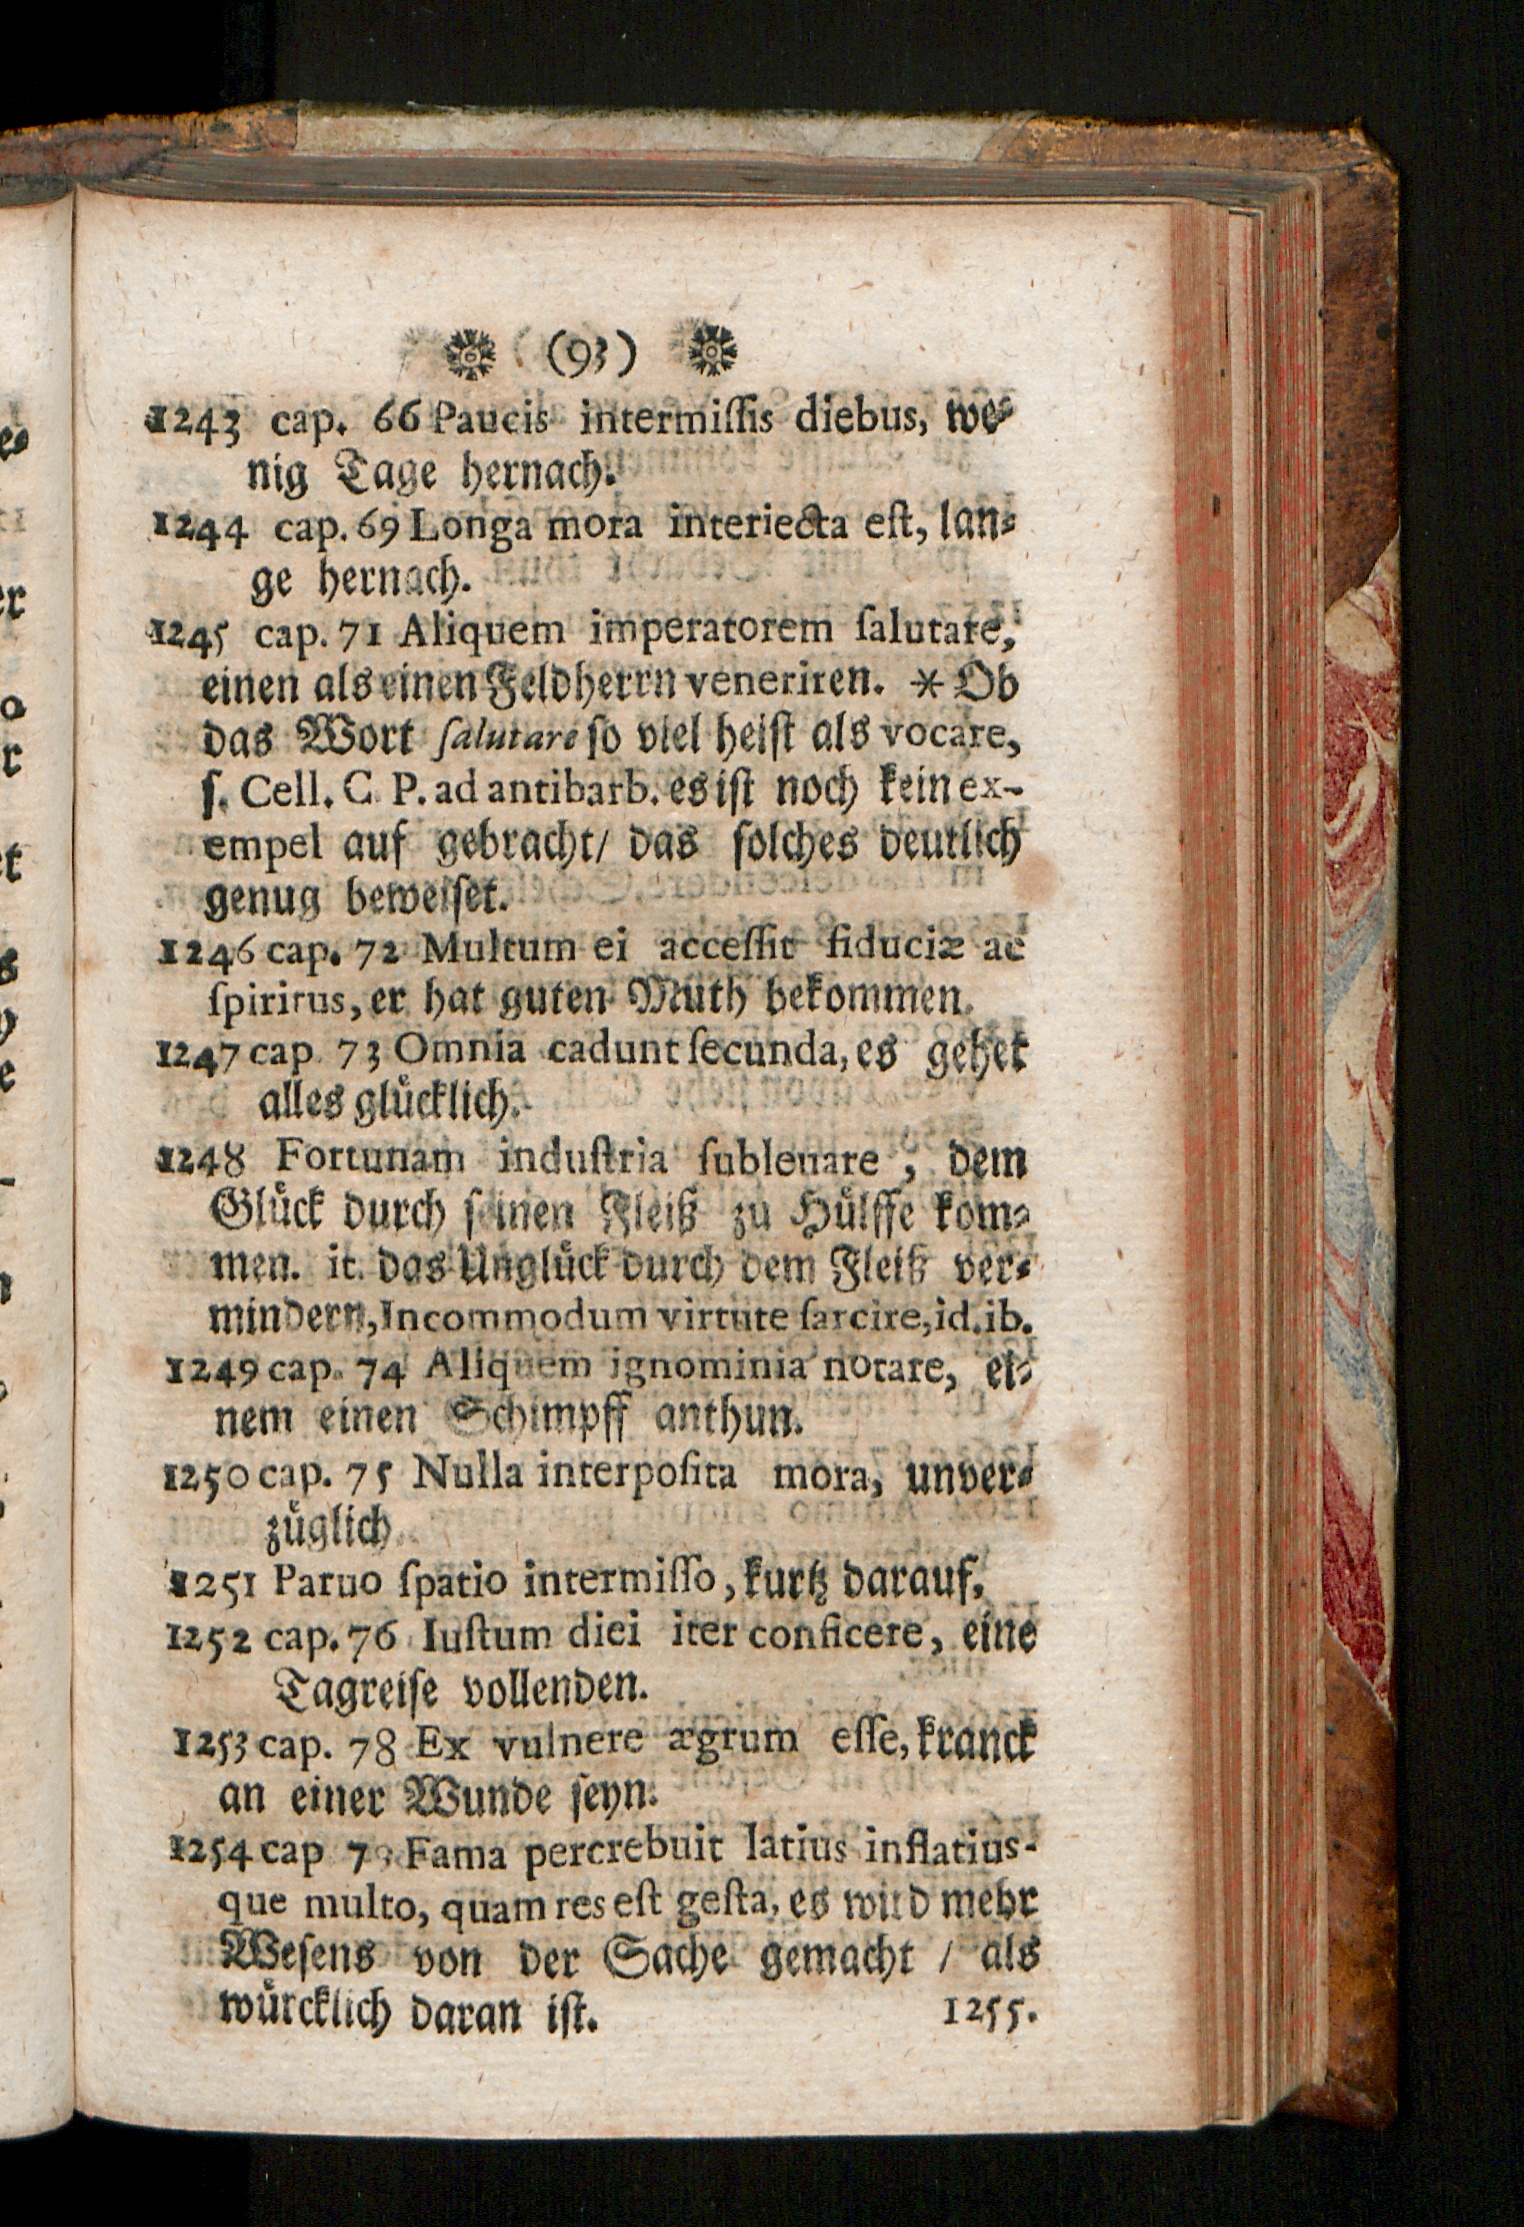 (93)
1243 cap. 66 Paucis intermiſſis diebus, we⸗
nig Tage hernach.
1244 cap. 69 Longa mora interiecta eſt, lan⸗
ge hernach.
1245 cap. 71 Aliquem imperatorem ſalutare,
einen als einen Feldherrn veneriren. * Ob
das Wort ſalutare ſo viel heiſt als vocare,
ſ. Cell. C P. ad antibarb. es iſt noch kein ex-
empel auf gebracht/ das ſolches deutlich
genug beweiſet.
1246 cap. 72 Multum ei acceſſit fiduciæ ac
ſpiritus, er hat guten Muth bekommen.
1247 cap. 73 Omnia cadunt ſecunda, es gehet
alles glücklich.
1248 Fortunam induſtria ſubleuare, dem
Glück durch ſeinen Fleiß zu Hülffe kom⸗
men. it. das Unglück durch dem Fleiß ver⸗
mindern, Incommodum virtute ſarcire, id. ib.
1249 cap. 74 Aliquem ignominia notare, ei⸗
nem einen Schimpff anthun.
1250 cap. 75 Nulla interpoſita mora, unver⸗
züglich
1251 Paruo ſpatio intermiſſo, kurtz darauf.
1252 cap. 76 Iuſtum diei iter conficere, eine
Tagreiſe vollenden.
1253 cap. 78 Ex vulnere ægrum eſſe, kranck
an einer Wunde ſeyn.
1254 cap 79 Fama percrebuit latius inflatius-
que multo, quam res eſt geſta, es wird mehr
Weſens von der Sache gemacht / als
würcklich daran iſt.
1255.